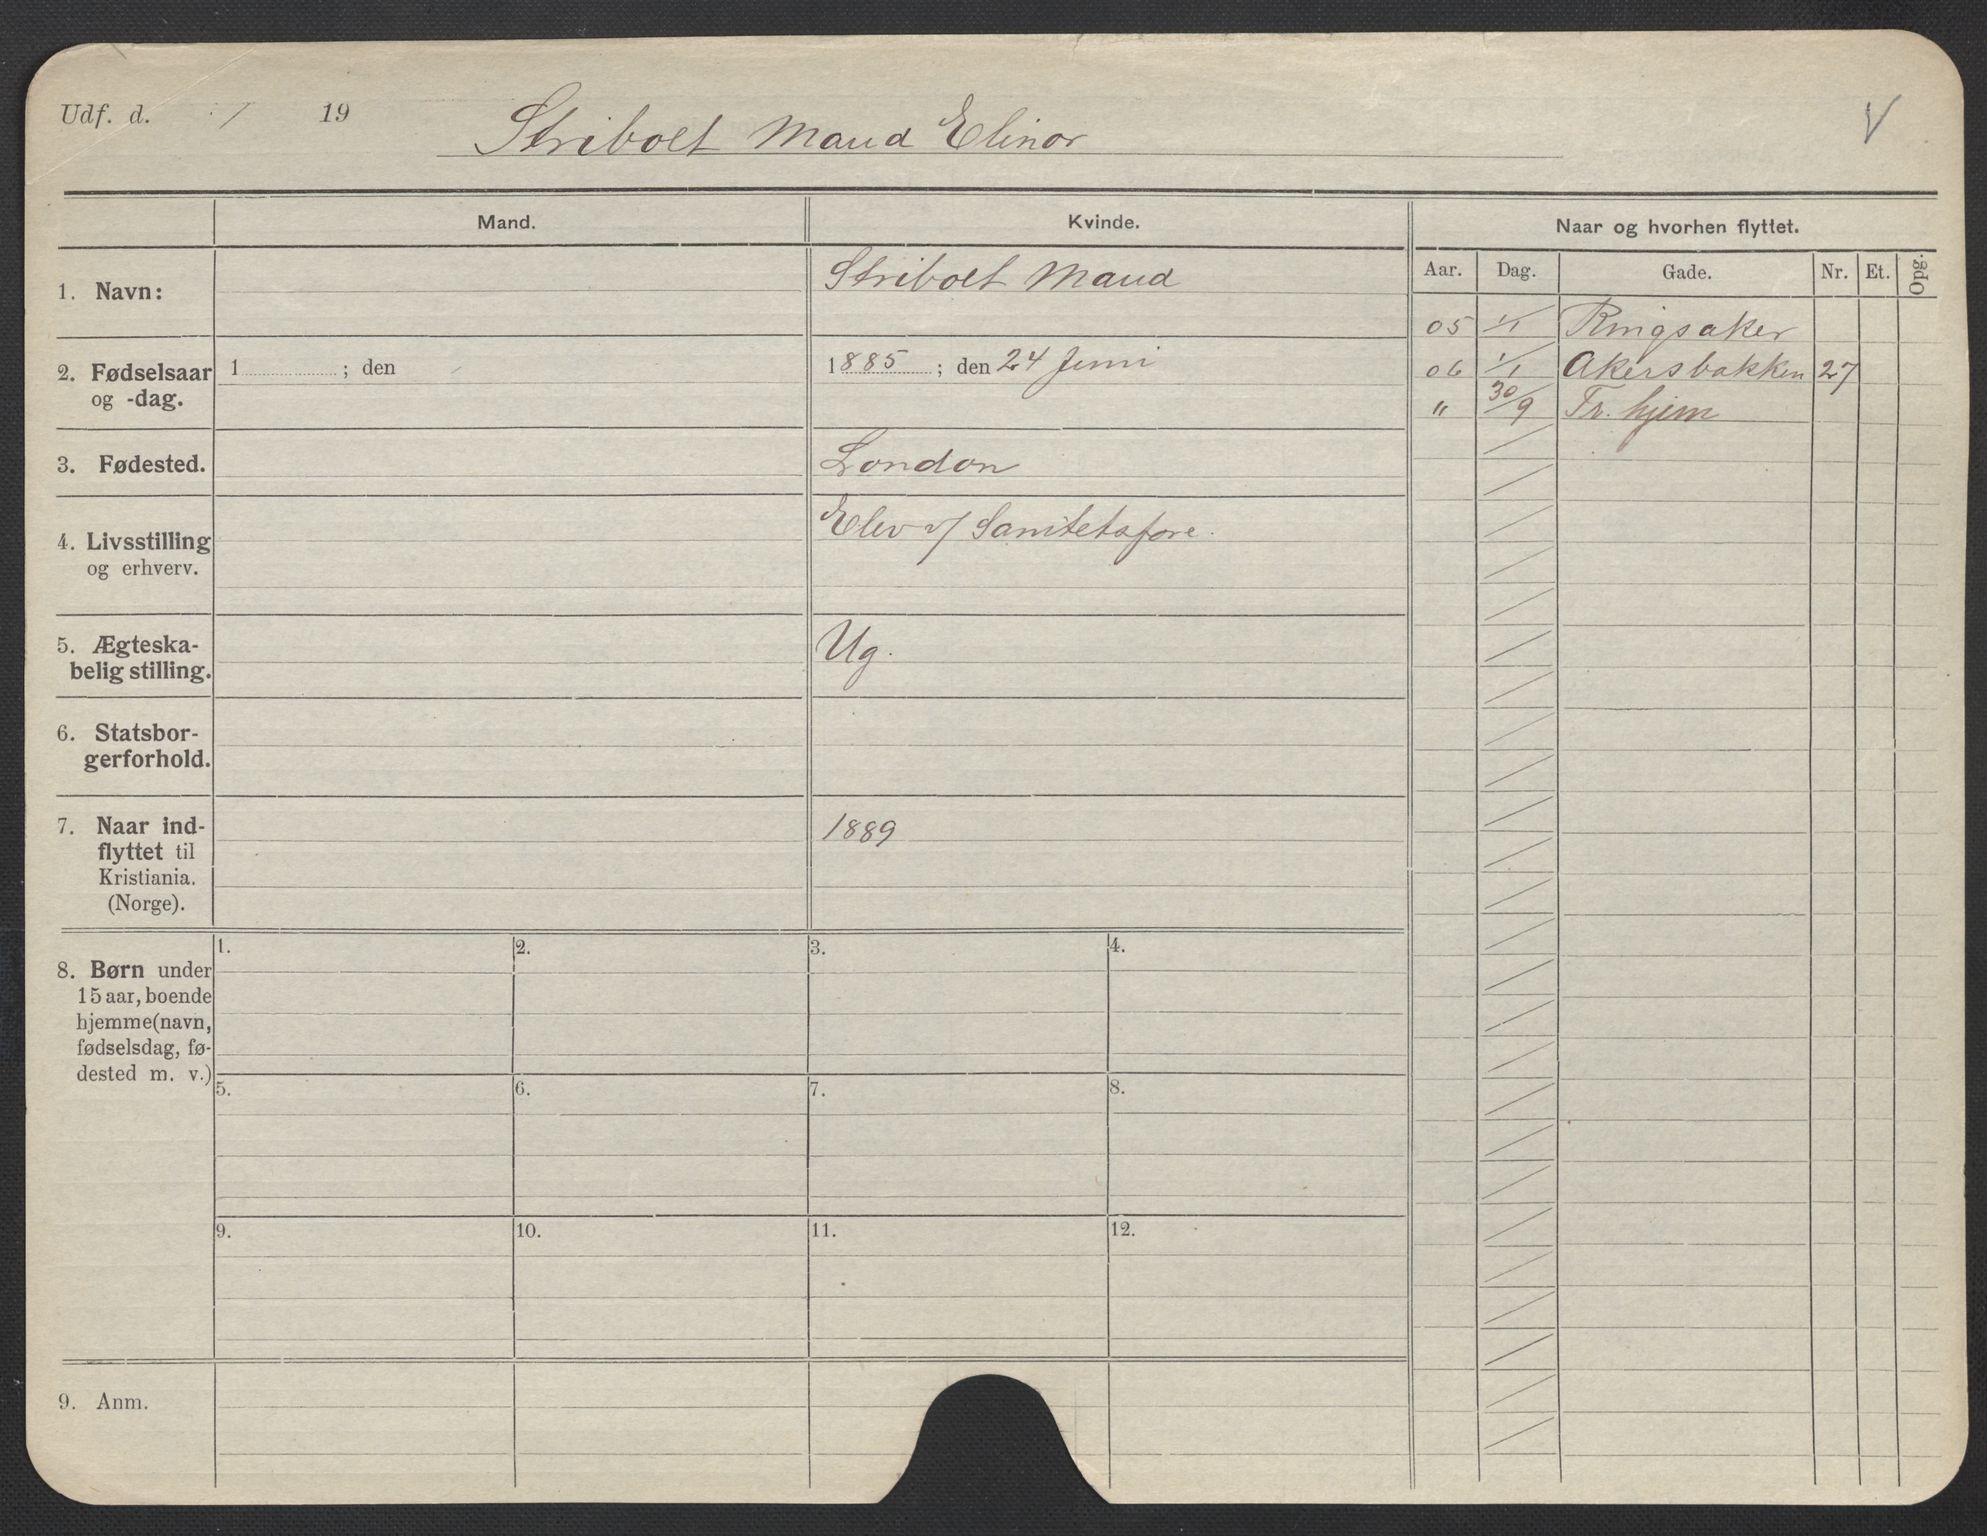 Udf. d. / 19
Stribolt Maud Elinor
V
Mand.
Kvinde.
Naar og hvorhen flyttet.
Aar. Dag. Gade. Nr. Et. Opg.
1. Navn:
Stribolt Maud
05 1/1 Ringsaker
2. Fødselsaar
og -dag.
1 ; den
1885 ; den 24 Juni
06 1/1 Akersbakken 27
" 30/9 Fr. hjem
3. Fødested.
London
4. Livsstilling
og erhverv.
Elev v/ Sanitetsfore.
5. Ægteska-
belig stilling.
Ug.
6. Statsbor-
gerforhold.
7. Naar ind-
flyttet til
Kristiania.
(Norge).
1889
8. Børn under
15 aar, boende
hjemme (navn,
fødselsdag, fø-
dested m. v.)
1. 2. 3. 4.
5. 6. 7. 8.
9. 10. 11. 12.
9. Anm.